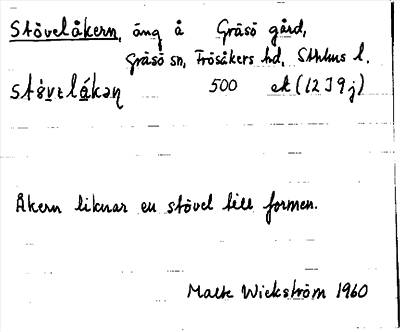 Stövelåkern, äng å Gräsö gård,
Gräsö sn, Frösåkers hd, Sthlms l.
500 ek (12J9j)
Åkern liknar en stövel till formen.
Malte Wickström 1960